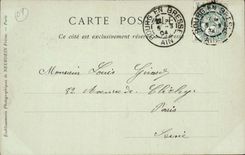 CARTE POS
Ce côté est exclusivement réservé
BOURG EN BRESSE
AIN
04
Monsieur Louis Girard
82 Avenue de Clichy
Paris
Seine
Etablissements Photographiques de NEURDEIN Frères. — Paris